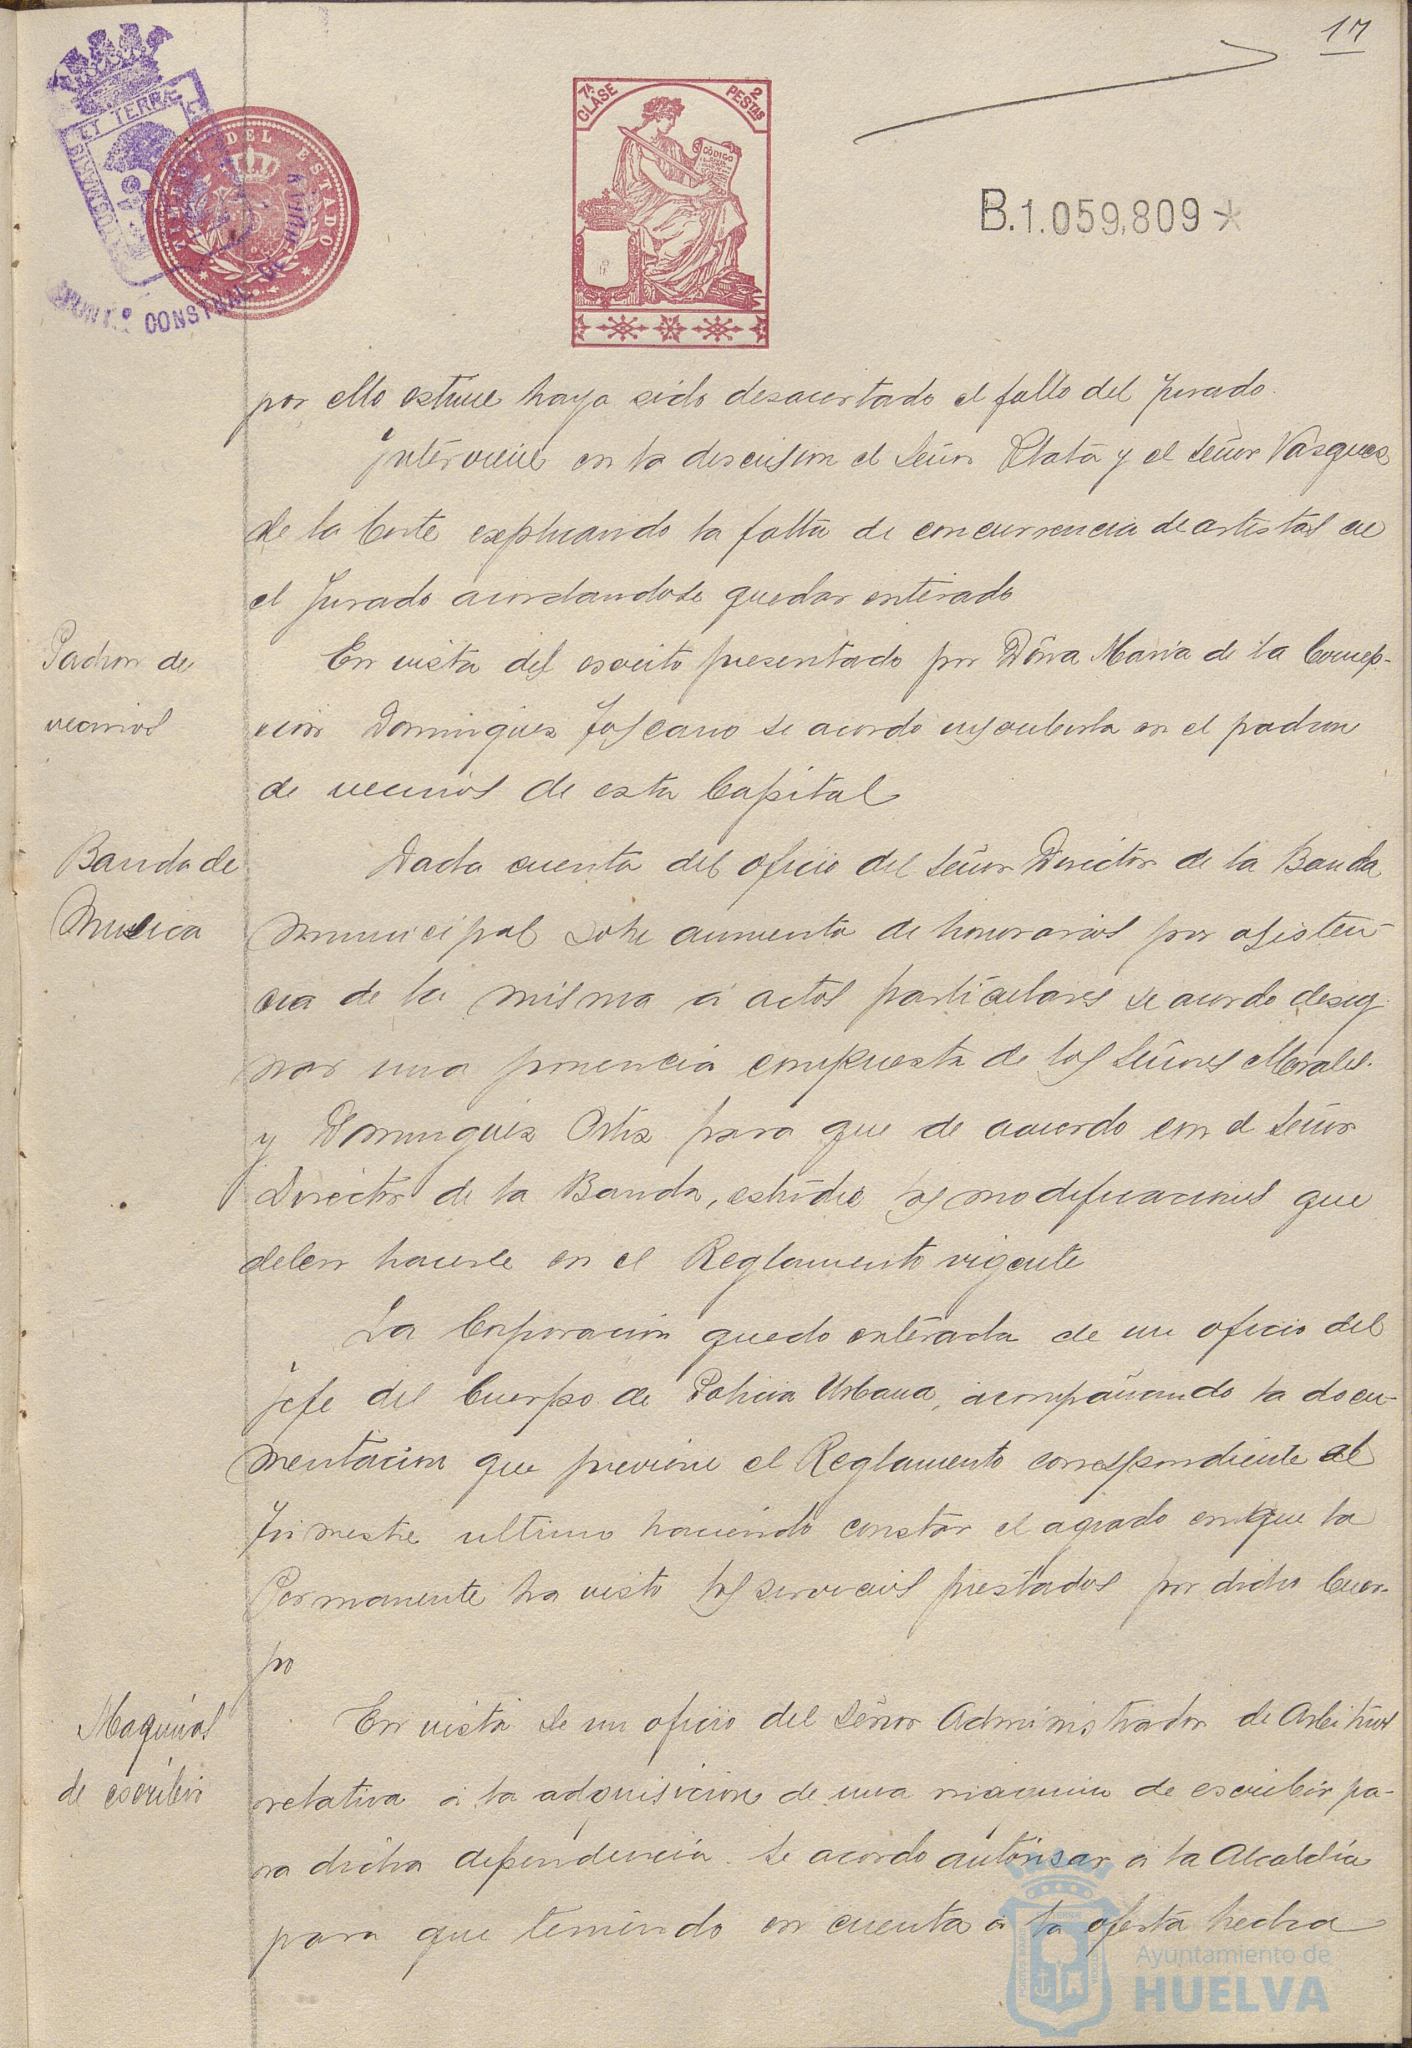 17
7ª CLASE
2 PESTAS
CÓDIGO
TIMBRE DEL ESTADO
ET TERRÆ
CONSTNAL DE
B.1.059,809*
por ello estime haya sido desacertado el fallo del Jurado.
Interviene en la discusion el Señor Plata y el Señor Vasques
de la Corte explicando la falta de concurrencia de artistas en
el Jurado acordandose quedar enterado
Padron de
vecinos
En vista del escrito presentado por Doña Maria de la Concep-
cion Dominguez Toscano se acordo inscribirla en el padron
de vecinos de esta Capital
Banda de
Musica
Dada cuenta del oficio del Señor Director de la Banda
municipal sobre aumento de honorarios por asisten-
cia de la misma á actos particulares se acordo desig
nar una ponencia compuesta de los Señores Morales
y Dominguez Ortiz para que de acuerdo con el Señor
Director de la Banda, estudie las modificaciones que
deben hacerse en el Reglamento vigente
La Corporacion quedo enterada de un oficio del
jefe del Cuerpo de Policia Urbana, acompañando la docu-
mentacion que previene el Reglamento correspondiente al
trimestre ultimo haciendo constar el agrado en que la
Permanente ha visto los servicios prestados por dicho Cuer-
po
Maquinas
de escribir
En vista de un oficio del Señor Administrador de Arbitrios
relativa á la adquisicion de una maquina de escribir pa-
ra dicha dependencia se acordo autorisar á la Alcaldia
para que teniendo en cuenta á la oferta hecha
Ayuntamiento de
HUELVA